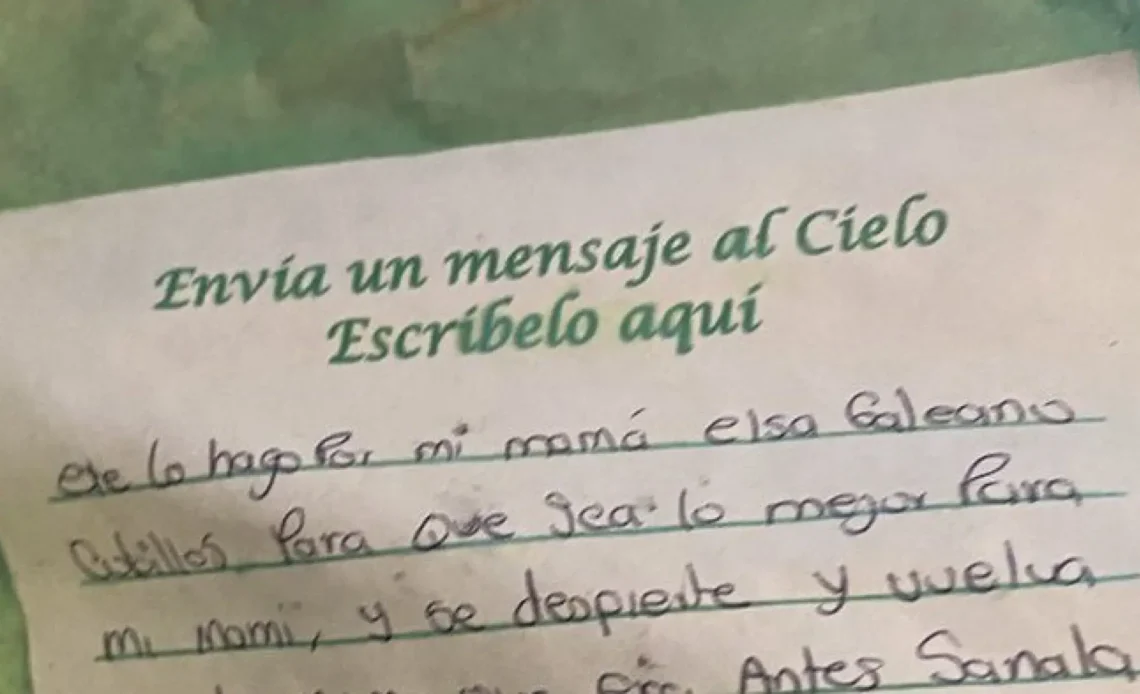 Envía un mensaje al Cielo
Escríbelo aquí
lo hago Por mi mamá elsa Galeano
Para Que Sea lo mejor Para
mi mami, y se despierte y vuelva
Antes Sanala